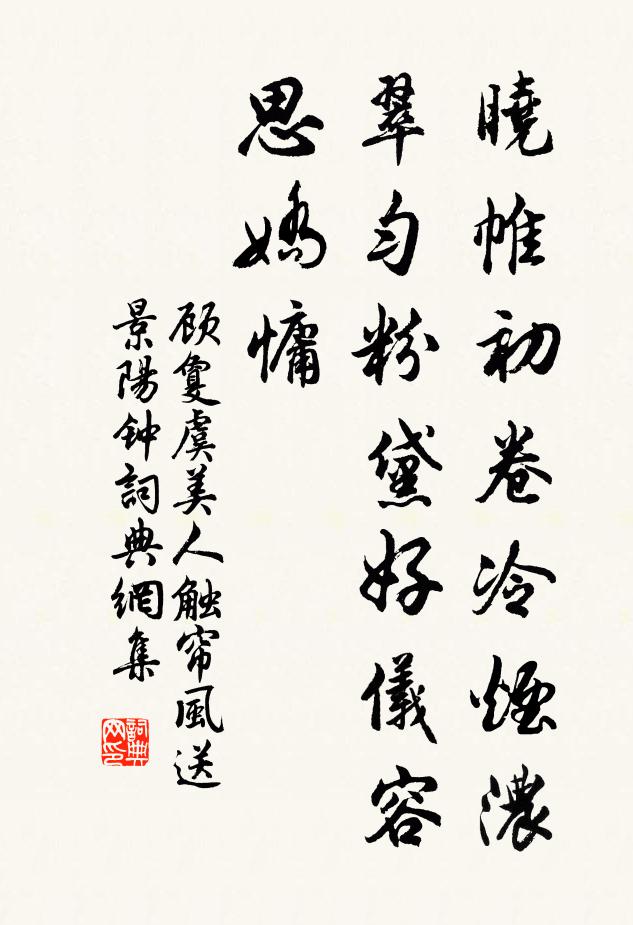 曉帷初卷冷煙濃
翠勻粉黛好儀容
思嬌慵
顾夐虞美人触帘風送
景陽钟詞典網集
詞典
网印